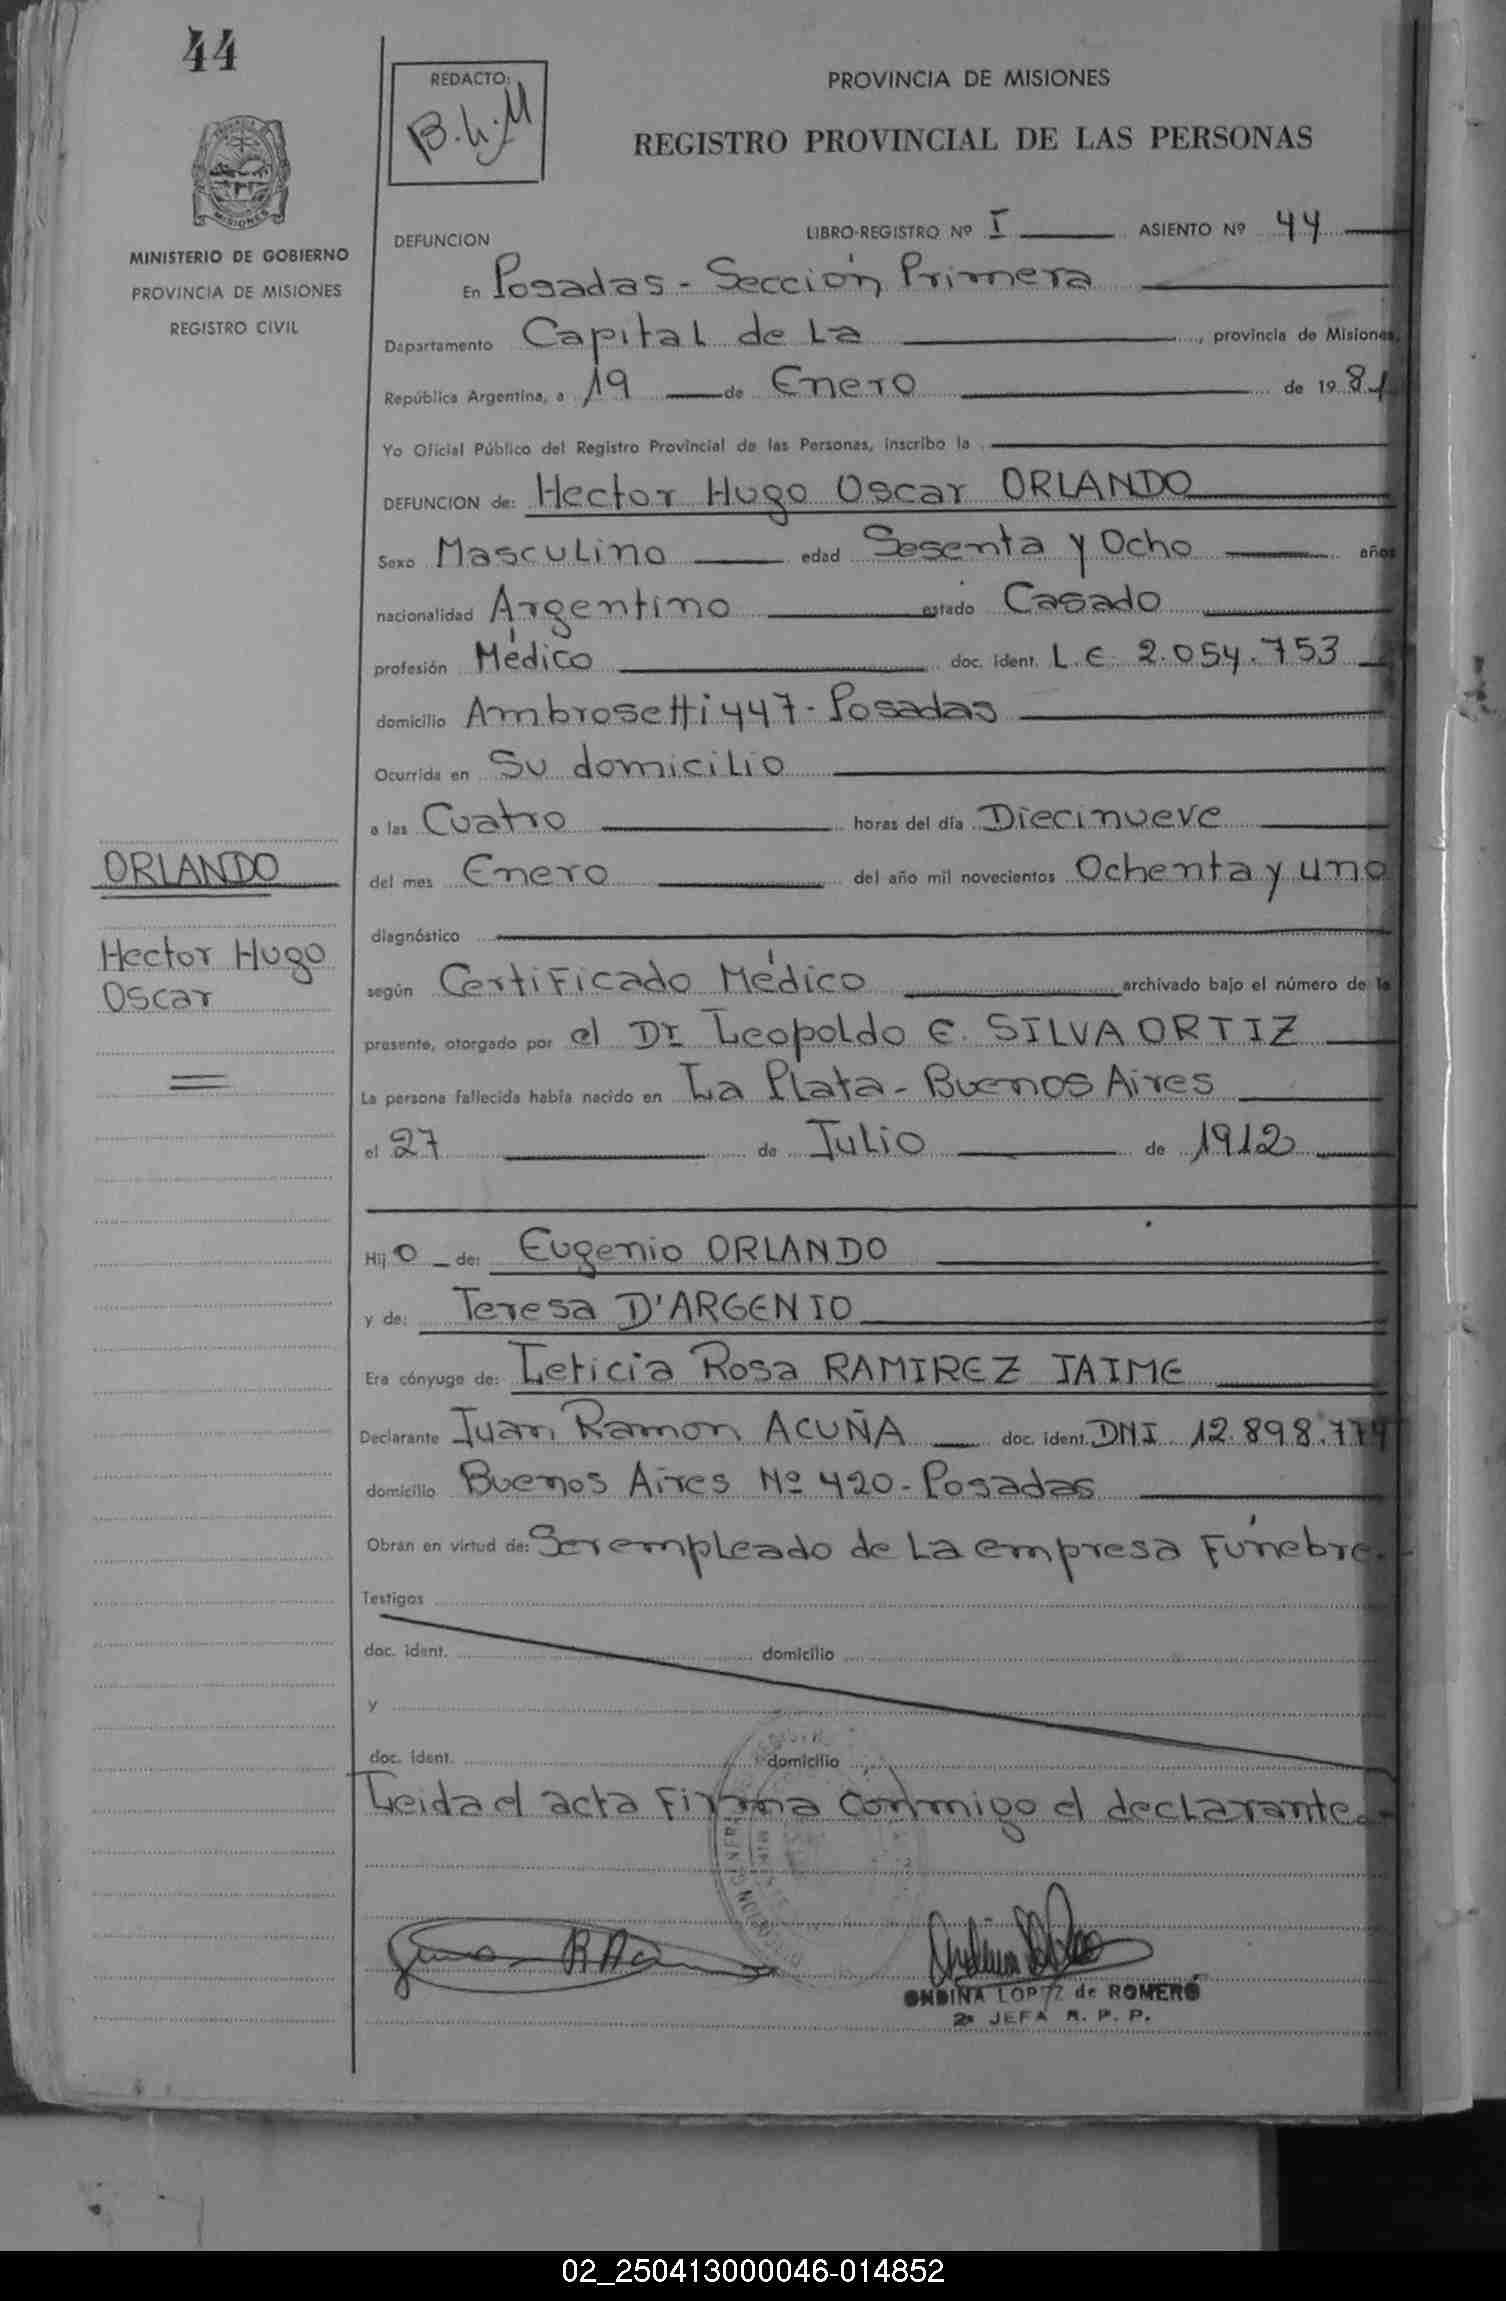 44
REDACTO:
B.h.M
PROVINCIA DE MISIONES
REGISTRO PROVINCIAL DE LAS PERSONAS
MISIONES
MINISTERIO DE GOBIERNO
PROVINCIA DE MISIONES
REGISTRO CIVIL
DEFUNCION LIBRO-REGISTRO Nº I ASIENTO Nº 44
En Posadas - Sección Primera
Departamento Capital de La, provincia de Misiones,
República Argentina, a 19 de Enero de 1981
Yo Oficial Público del Registro Provincial de las Personas, inscribo la
DEFUNCION de: Hector Hugo Oscar ORLANDO
Sexo Masculino edad Sesenta y Ocho años
nacionalidad Argentino estado Casado
profesión Médico doc. ident. L.E. 2.054.753
domicilio Ambrosetti 447 - Posadas
Ocurrida en Su domicilio
a las Cuatro horas del día Diecinueve
del mes Enero del año mil novecientos Ochenta y uno
diagnóstico
según Certificado Médico archivado bajo el número de la
presente, otorgado por el Dr Leopoldo E. SILVA ORTIZ
La persona fallecida había nacido en La Plata - Buenos Aires
el 27 de Julio de 1912
ORLANDO
Hector Hugo
Oscar
Hijo de: Eugenio ORLANDO
y de: Teresa D'ARGENIO
Era cónyuge de: Leticia Rosa RAMIREZ JAIME
Declarante Juan Ramon ACUÑA doc. ident. DNI 12.898.774
domicilio Buenos Aires Nº 420 - Posadas
Obran en virtud de: Ser empleado de la empresa Fúnebre.
Testigos
doc. ident. domicilio
y
doc. ident. domicilio
Leida el acta Firma conmigo el declarante.
ONDINA LOPEZ de ROMERO
2ª JEFA R. P. P.
02_250413000046-014852